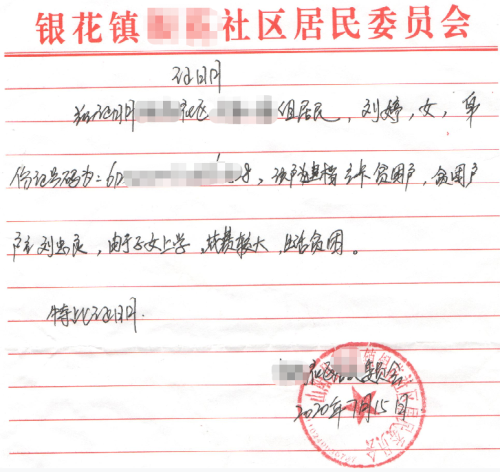 银花镇社区居民委员会
证明
兹证明社区组居民，刘婷，女，身
份证号码为：618，该户为建档立卡贫困户，贫困户
户主刘忠良，由于子女上学，花费较大，生活贫困。
特此证明.
社区居民委员会
2020年7月15日